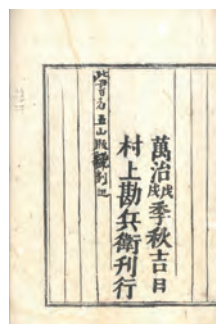 萬治戊戌季秋吉日
村上勘兵衛刊行
此書為五山版刻也